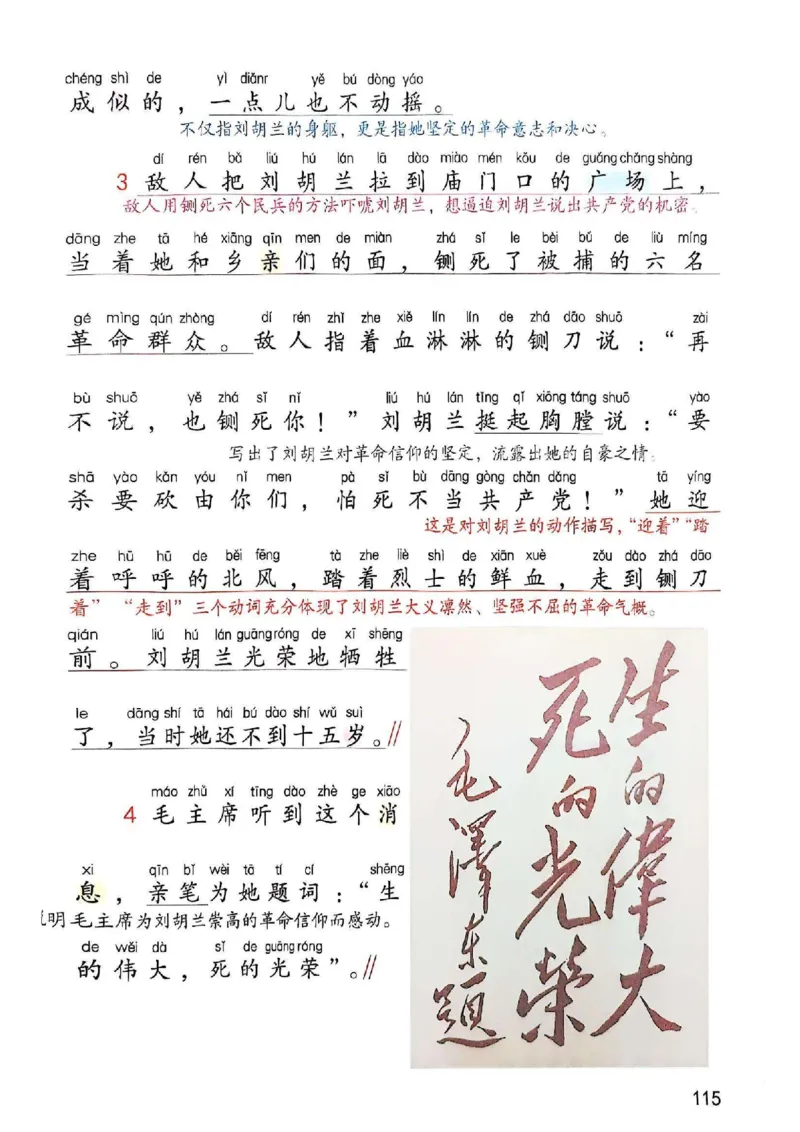 chéng shì de yì diǎnr yě bú dòng yáo
成似的，一点儿也不动摇。
不仅指刘胡兰的身躯，更是指她坚定的革命意志和决心。
dí rén bǎ liú hú lán lā dào miào mén kǒu de guǎng chǎng shàng
3 敌人把刘胡兰拉到庙门口的广场上，
敌人用铡死六个民兵的方法吓唬刘胡兰，想逼迫刘胡兰说出共产党的机密。
dāng zhe tā hé xiāng qīn men de miàn zhá sǐ le bèi bǔ de liù míng
当着她和乡亲们的面，铡死了被捕的六名
gé mìng qún zhòng dí rén zhǐ zhe xiě lín lín de zhá dāo shuō zài
革命群众。敌人指着血淋淋的铡刀说：“再
bù shuō yě zhá sǐ nǐ liú hú lán tǐng qǐ xiōng táng shuō yào
不说，也铡死你！”刘胡兰挺起胸膛说：“要
写出了刘胡兰对革命信仰的坚定，流露出她的自豪之情。
shā yào kǎn yóu nǐ men pà sǐ bù dāng gòng chǎn dǎng tā yíng
杀要砍由你们，怕死不当共产党！”她迎
这是对刘胡兰的动作描写，“迎着”“踏
zhe hū hū de běi fēng tà zhe liè shì de xiān xuè zǒu dào zhá dāo
着呼呼的北风，踏着烈士的鲜血，走到铡刀
着”“走到”三个动词充分体现了刘胡兰大义凛然、坚强不屈的革命气概。
qián liú hú lán guāng róng de xī shēng
前。刘胡兰光荣地牺牲
le dāng shí tā hái bú dào shí wǔ suì
了，当时她还不到十五岁。//
máo zhǔ xí tīng dào zhè ge xiāo
4 毛主席听到这个消
xi qīn bǐ wèi tā tí cí shēng
息，亲笔为她题词：“生
明毛主席为刘胡兰崇高的革命信仰而感动。
de wěi dà sǐ de guāng róng
的伟大，死的光荣”。//
生的偉大
死的光榮
毛澤东題
115